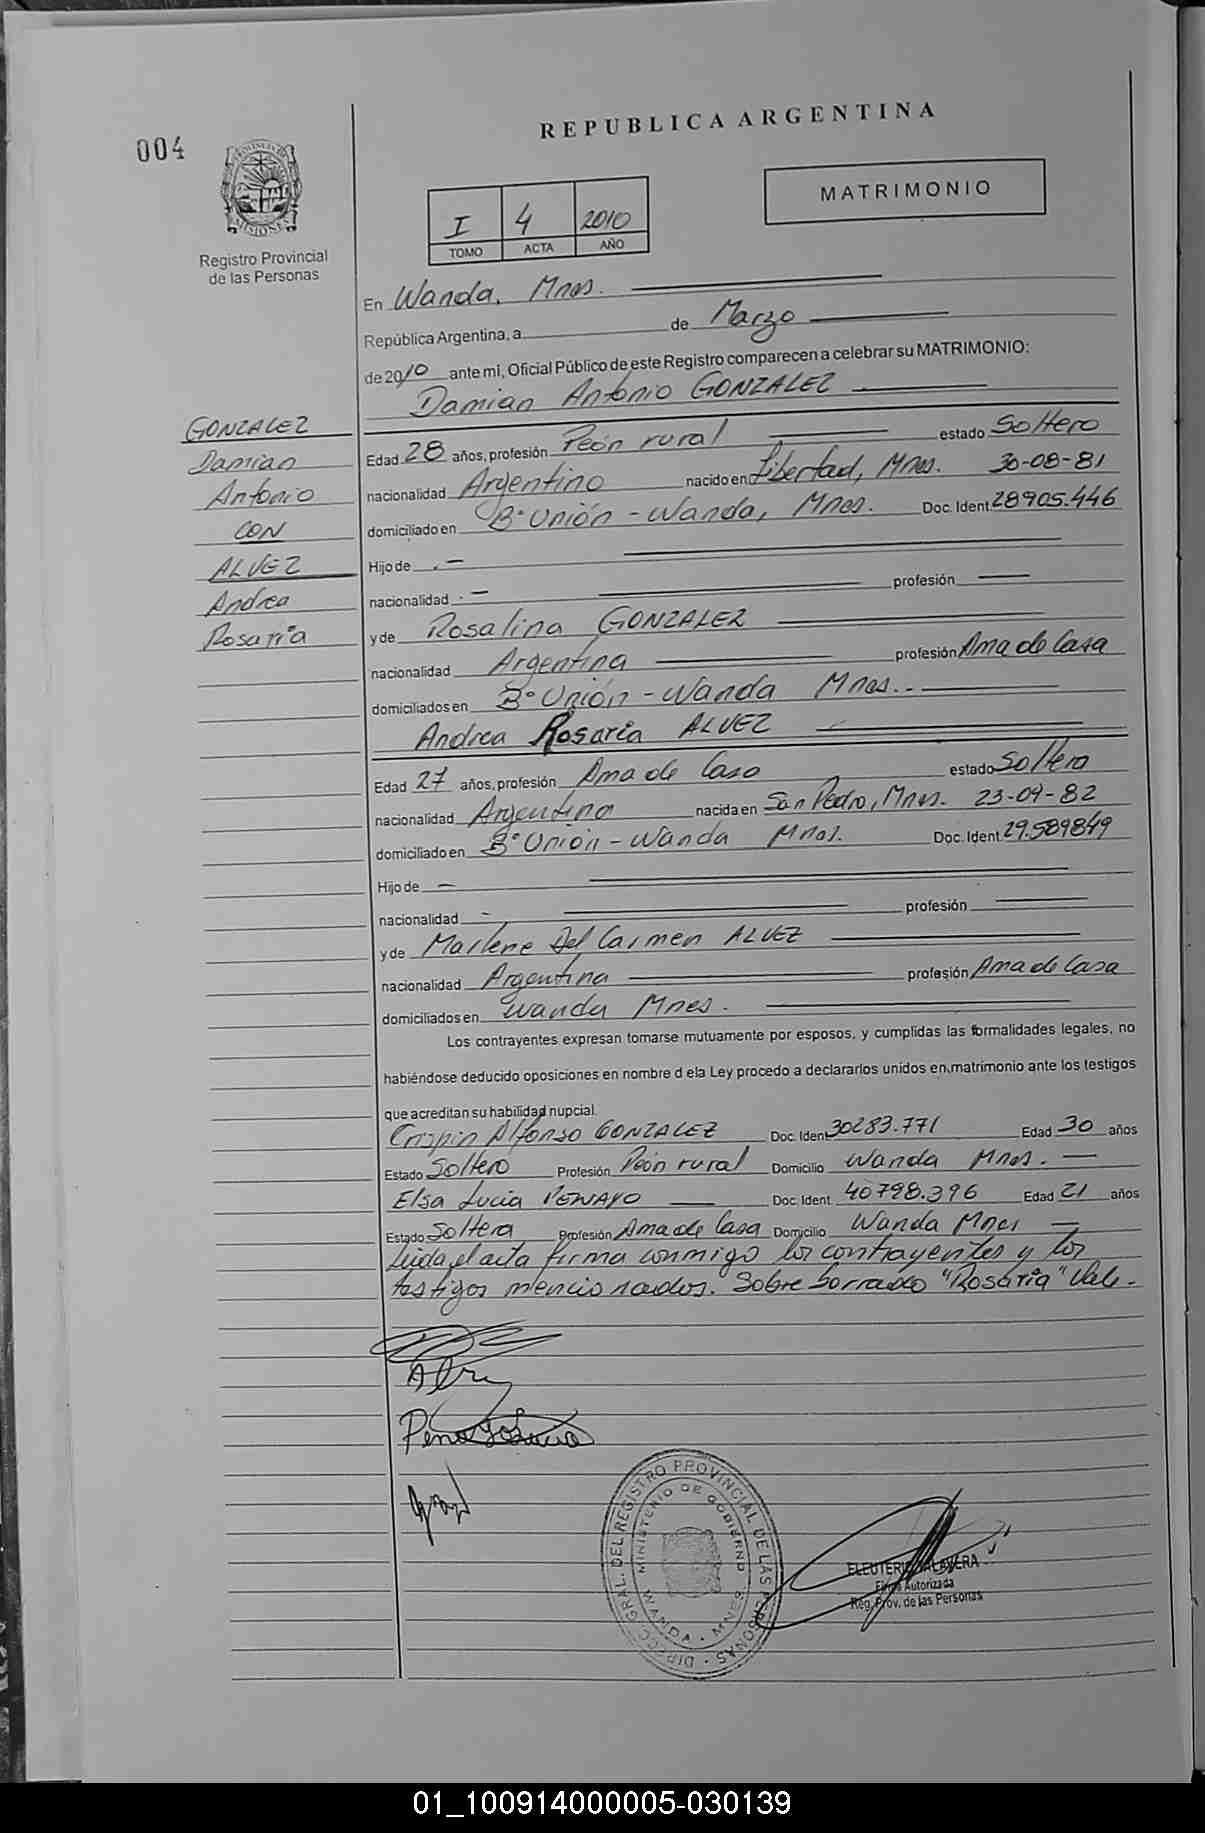 004
REPUBLICA ARGENTINA
PROVINCIA DE MISIONES
Registro Provincial
de las Personas
I 4 2010
TOMO ACTA AÑO
MATRIMONIO
En Wanda, Mnes.
República Argentina, a de Marzo
de 2010 ante mi, Oficial Público de este Registro comparecen a celebrar su MATRIMONIO:
Damian Antonio GONZALEZ
GONZALEZ
Damian
Antonio
CON
ALVEZ
Andrea
Rosaria
Edad 28 años, profesión Peón rural estado Soltero
nacionalidad Argentino nacido en Libertad, Mnes. 30-08-81
domiciliado en B° Unión - Wanda, Mnes. Doc. Ident. 28905.446
Hijo de . —
nacionalidad . — profesión —
y de Rosalina GONZALEZ
nacionalidad Argentina profesión Ama de Casa
domiciliados en B° Unión - Wanda Mnes..
Andrea Rosaria ALVEZ
Edad 27 años, profesión Ama de Casa estado Soltera
nacionalidad Argentina nacida en San Pedro, Mnes. 23-09-82
domiciliado en B° Unión - Wanda Mnes. Doc. Ident. 29.589849
Hijo de —
nacionalidad - profesión
y de Marlene Del Carmen ALVEZ
nacionalidad Argentina profesión Ama de Casa
domiciliados en Wanda Mnes.
Los contrayentes expresan tomarse mutuamente por esposos, y cumplidas las formalidades legales, no
habiéndose deducido oposiciones en nombre d ela Ley procedo a declararlos unidos en matrimonio ante los testigos
que acreditan su habilidad nupcial.
Crispin Alfonso GONZALEZ Doc. Ident. 30283.771 Edad 30 años
Estado Soltero Profesión Peón rural Domicilio Wanda Mnes. —
Elsa Lucia PENAYO Doc. Ident. 40798.396 Edad 21 años
Estado Soltera Profesión Ama de Casa Domicilio Wanda Mnes —
Leida el acta firma conmigo los contrayentes y los
testigos mencionados. Sobre borrado "Rosaria" Vale.-
DIRECC. GRAL. DEL REGISTRO PROVINCIAL DE LAS PERSONAS
MINISTERIO DE GOBIERNO
WANDA - MNES
ELEUTERIO TALAVERA
Firma Autorizada
Reg. Prov. de las Personas
01_100914000005-030139